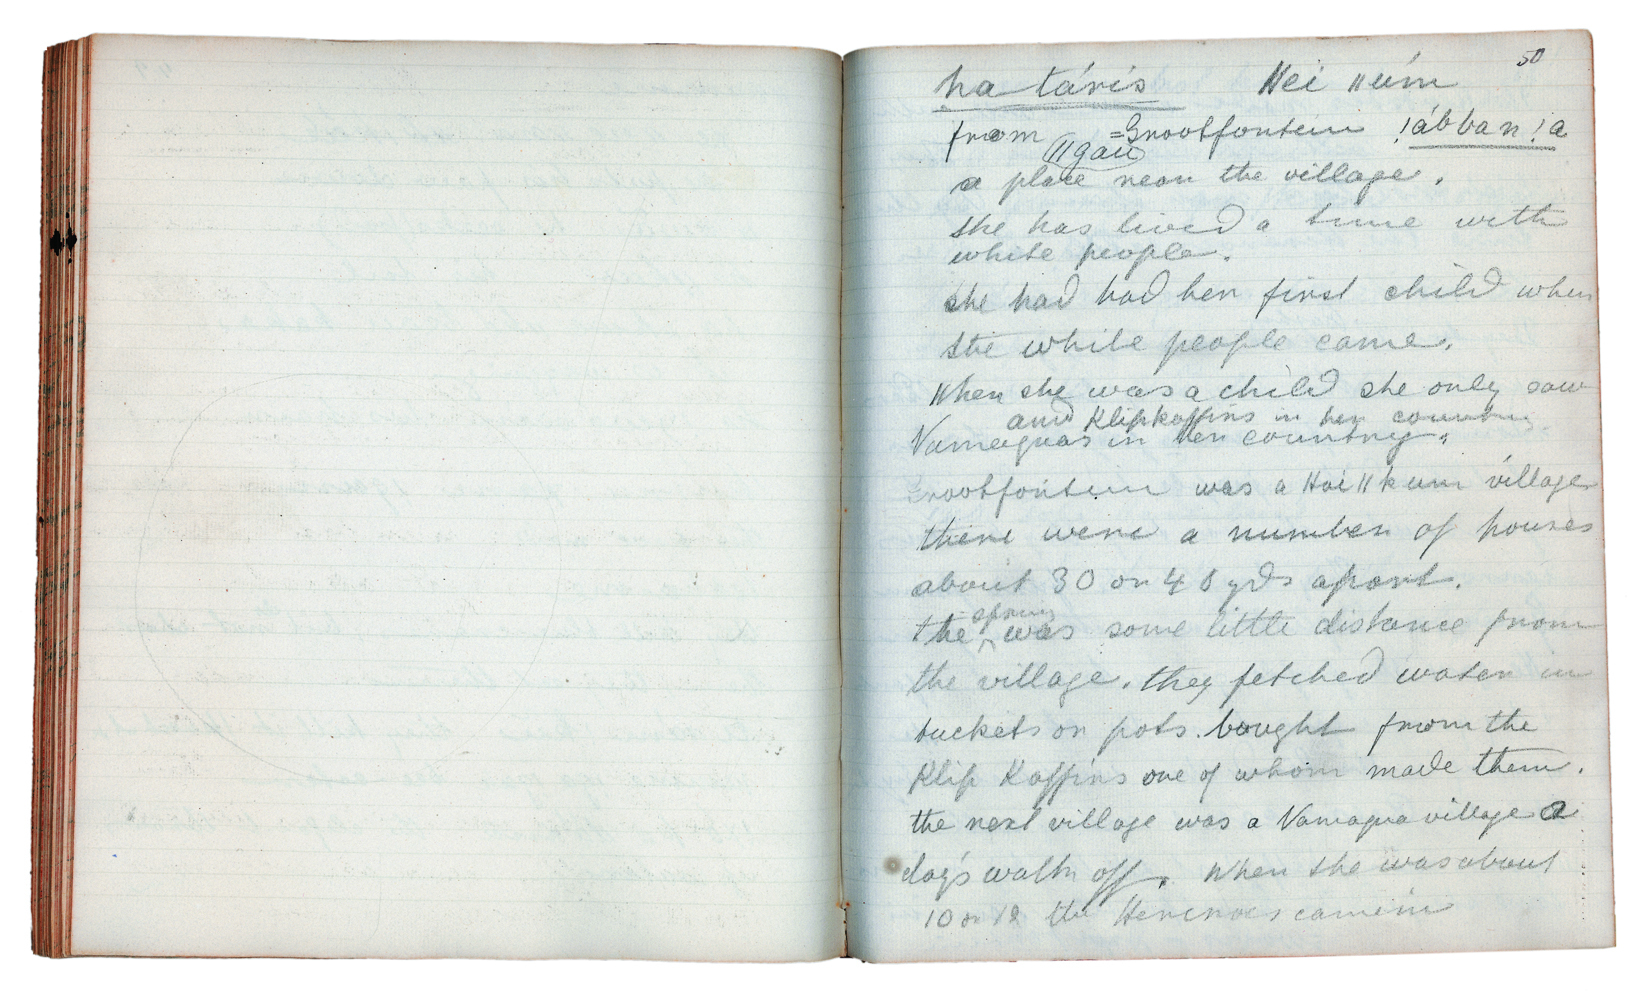 50
ha táris Hei ‖úm
from =Grootfontein !ábban !a
‖gau
a place near the village.
She has lived a time with
white people.
She had had her first child when
the white people came.
When she was a child she only saw
and Klipkaffirs in her country
Namaquas in her country.
Grootfontein was a Hai ‖kum village
there were a number of houses
about 30 or 40 yds apart.
spring
the was some little distance from
the village. they fetched water in
buckets or pots. bought from the
Klip Kaffirs one of whom made them.
the next village was a Namaqua village a
day's walk off. When she was about
10 or 12 the Hereroes came in